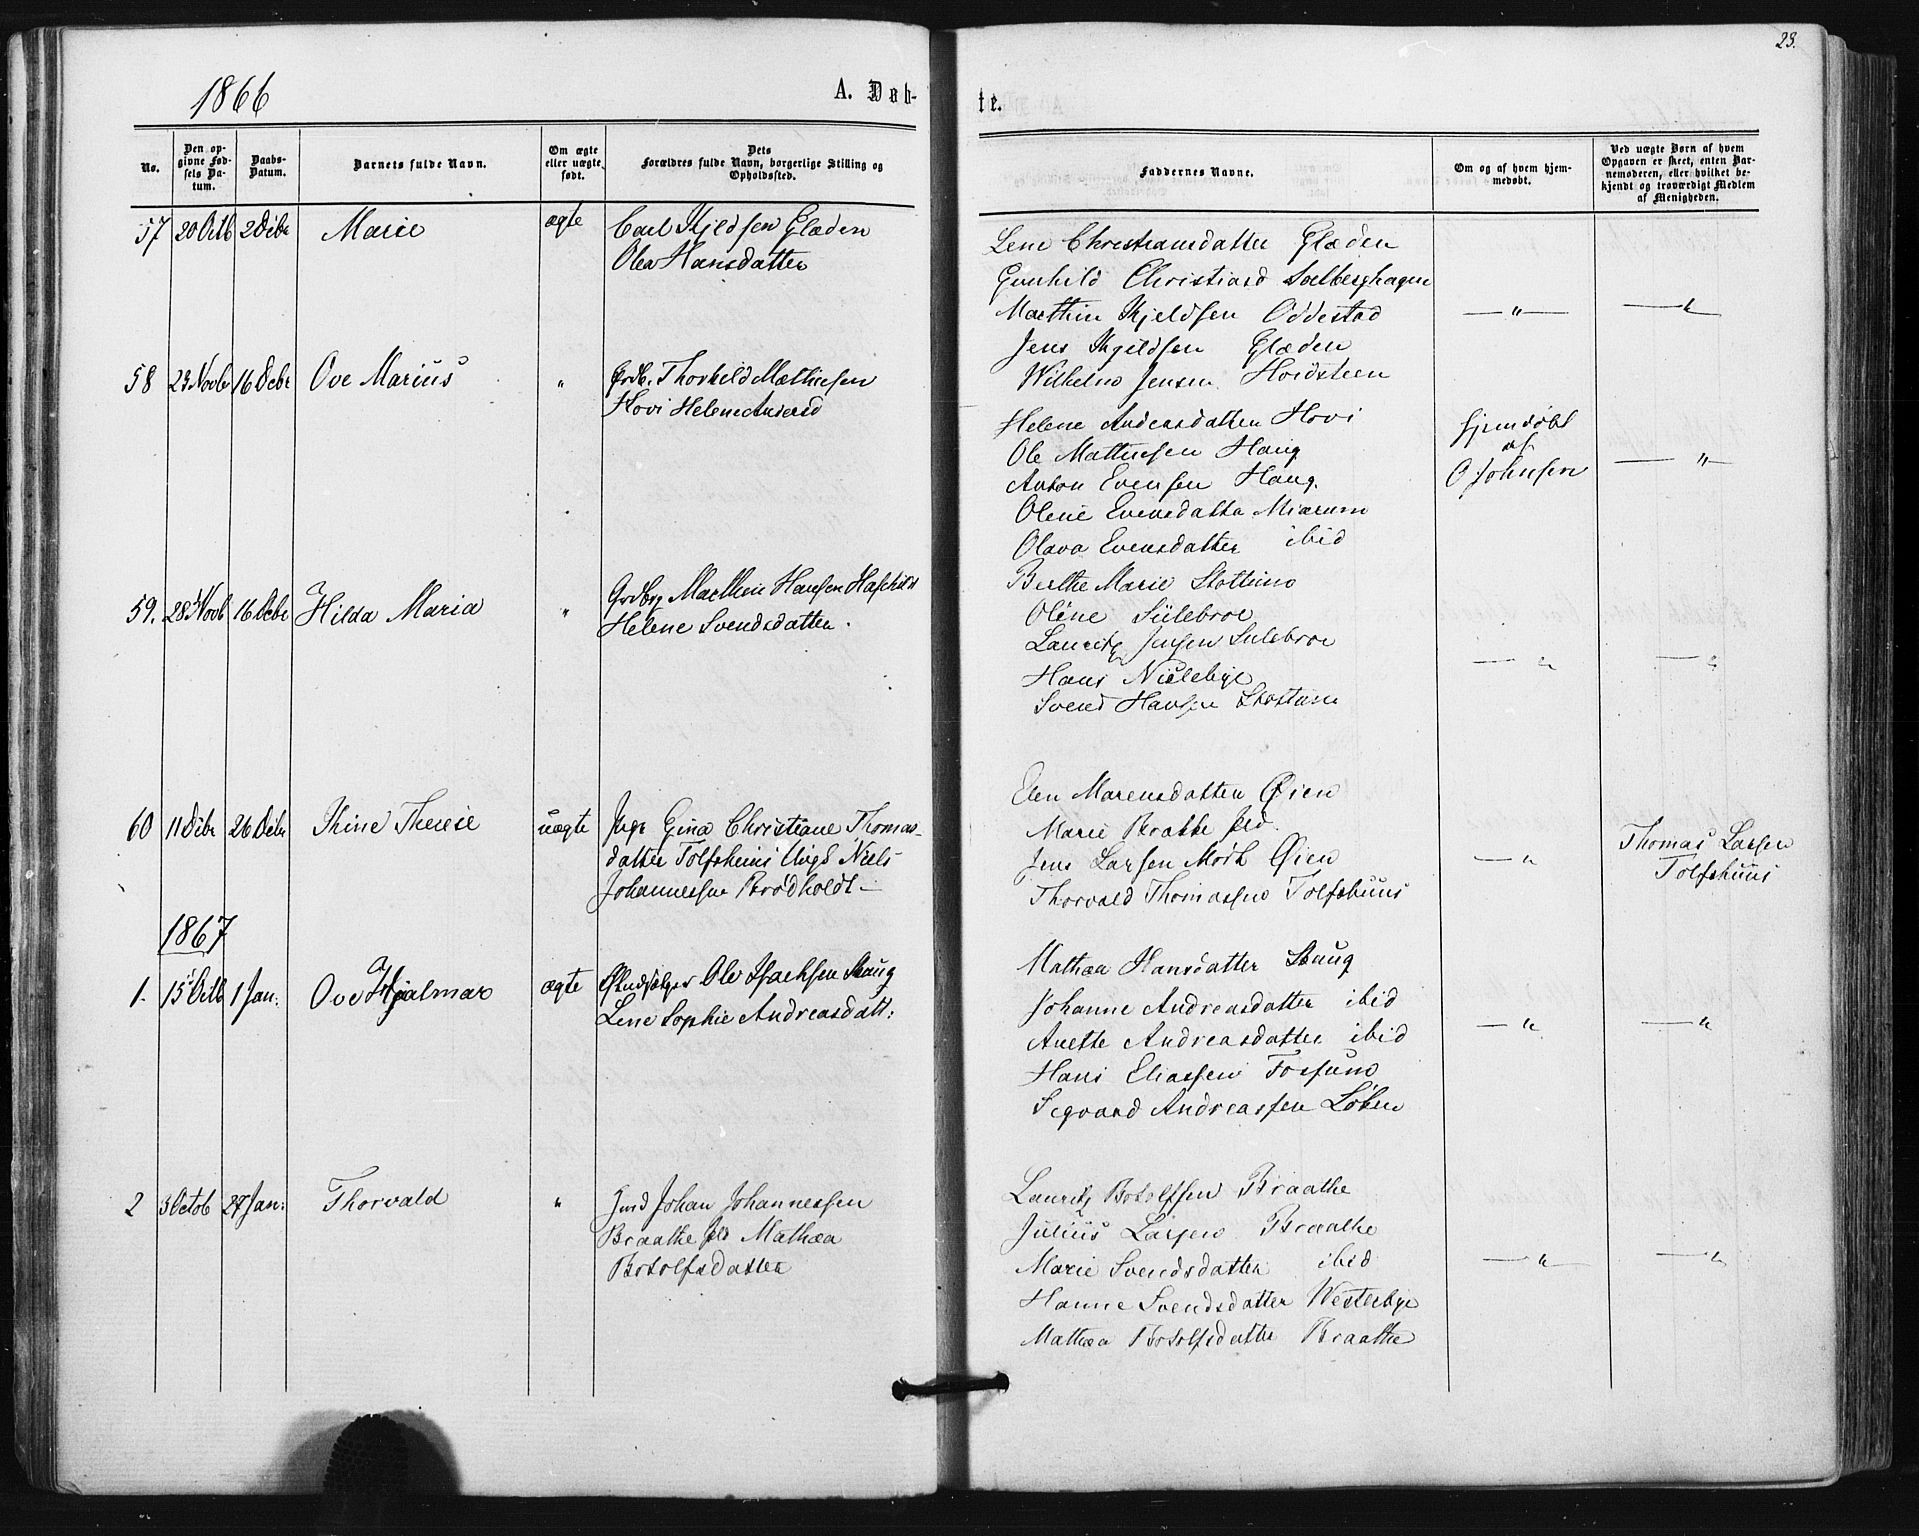 23.
1866
A. Døb-
te.
No.
Den op-
givne Fød-
sels Da-
tum.
Daabs-
Datum.
Barnets fulde Navn.
Om ægte
eller uægte
født.
Dets
Forældres fulde Navn, borgerlige Stilling og
Opholdssted.
Faddernes Navne.
Om og af hvem hjem-
medøbt.
Ved uægte Børn af hvem
Opgaven er skeet, enten Bar-
nemoderen, eller hvilket be-
kjendt og troværdigt Medlem
af Menigheden.
57 20 Octb 2 Debr Marie ægte Carl Kjeldsen Glæden
Olea Hansdatter
Lene Christiansdatter Glæden
Gunhild Christiansd
Marthin Kjeldsen Oddestad — " — — " —
Jens Kjeldsen Glæden
Wilhelm Jensen
58 23 Novbr 16 Debr Ove Marius " Thorkild Mathiesen
Hovi Helene Andersd
Helene Andersdatter Hovi
Ole Mathiesen Haug
Anton Evensen Haug.
Olene Evensdatter Miørum
Olava Evensdatter ibid
hjemdøbt
af
O Johnsen
— " —
59. 28 Novb 16 Debr Hilda Maria " Grdbrg Marthin Hansen
Helene Svendsdatter.
Berthe Marie
Oléne Sulebroe
Lauritz Jensen Sulebroe
Hans Nielebye — " — — "
Svend Hansen
60 11 Debr 26 Debr Thine Therese uægte Pige Gina Christiane Thomas-
datter Tolfshuus Ungk Niels
Johannessen Brødholdt —
Elen Marensdatter Øien
Marie Brække
Jens Larsen Mørk Øien — "
Thorvald Thomassen Tolfshuus
Thomas Larsen
Tolfshuus
1867
1. 15 Octb 1 Jan: Ove Hjalmar ægte Ole Isachsen Skaug
Lene Sophie Andreasdatt:
Mathea Hansdatter Skaug
Johanne Andreasdatter ibid
Anette Andreasdatter ibid — " — — "
Hans Eliassen Fossum
Segvard Andreassen Løken
2 3 Octob 27 Jan: Thorvald " Johan Johannessen
Braathe Mathea
Botolfsdatter
Lauritz Botolfsen Braathe
Julius Larsen Braathe
Marie Svendsdatter ibid — " — — "
Hanne Svendsdatter Westerbye
Mathea Botolfsdatter Braathe